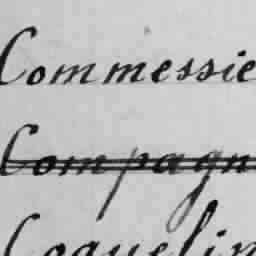 Commessie
Compagn
Coquelin